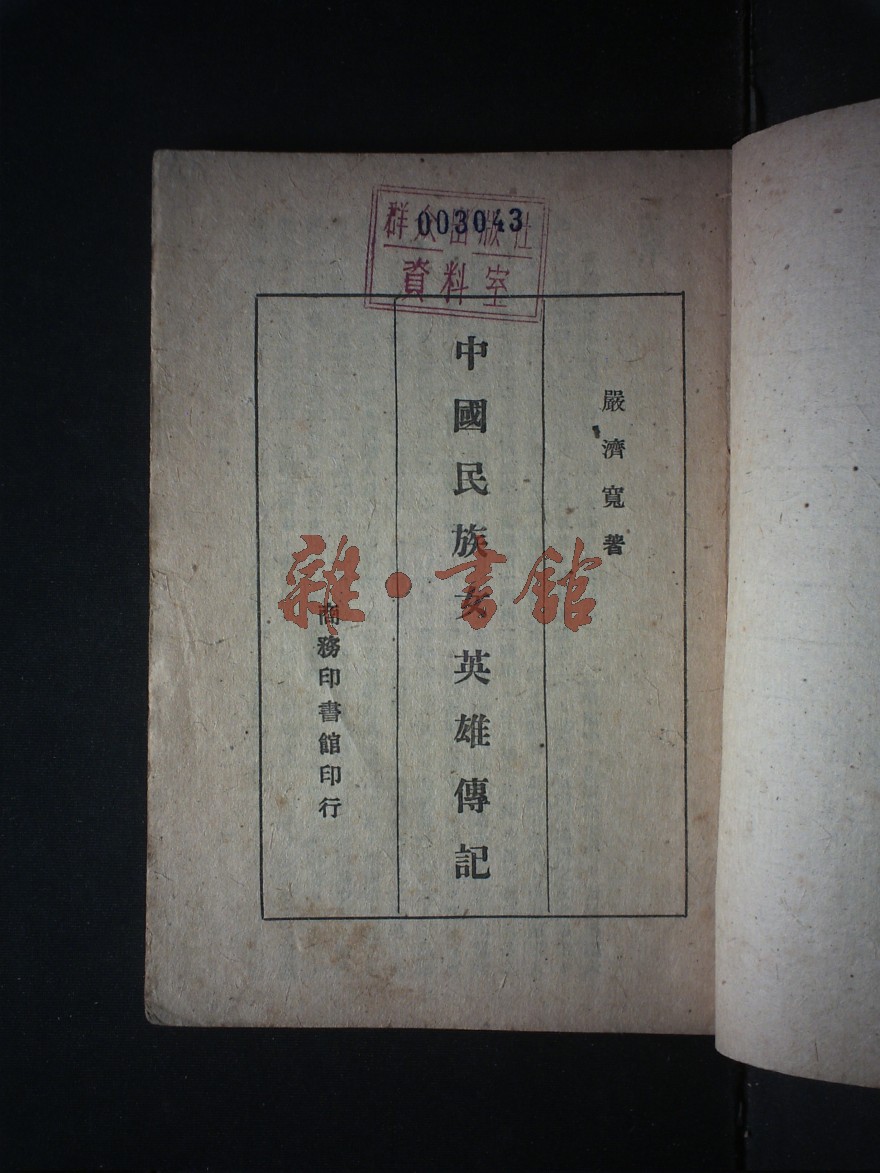 群众出版社
003043
資料室
嚴濟寬著
中國民族女英雄傳記
商務印書館印行
雜·書館